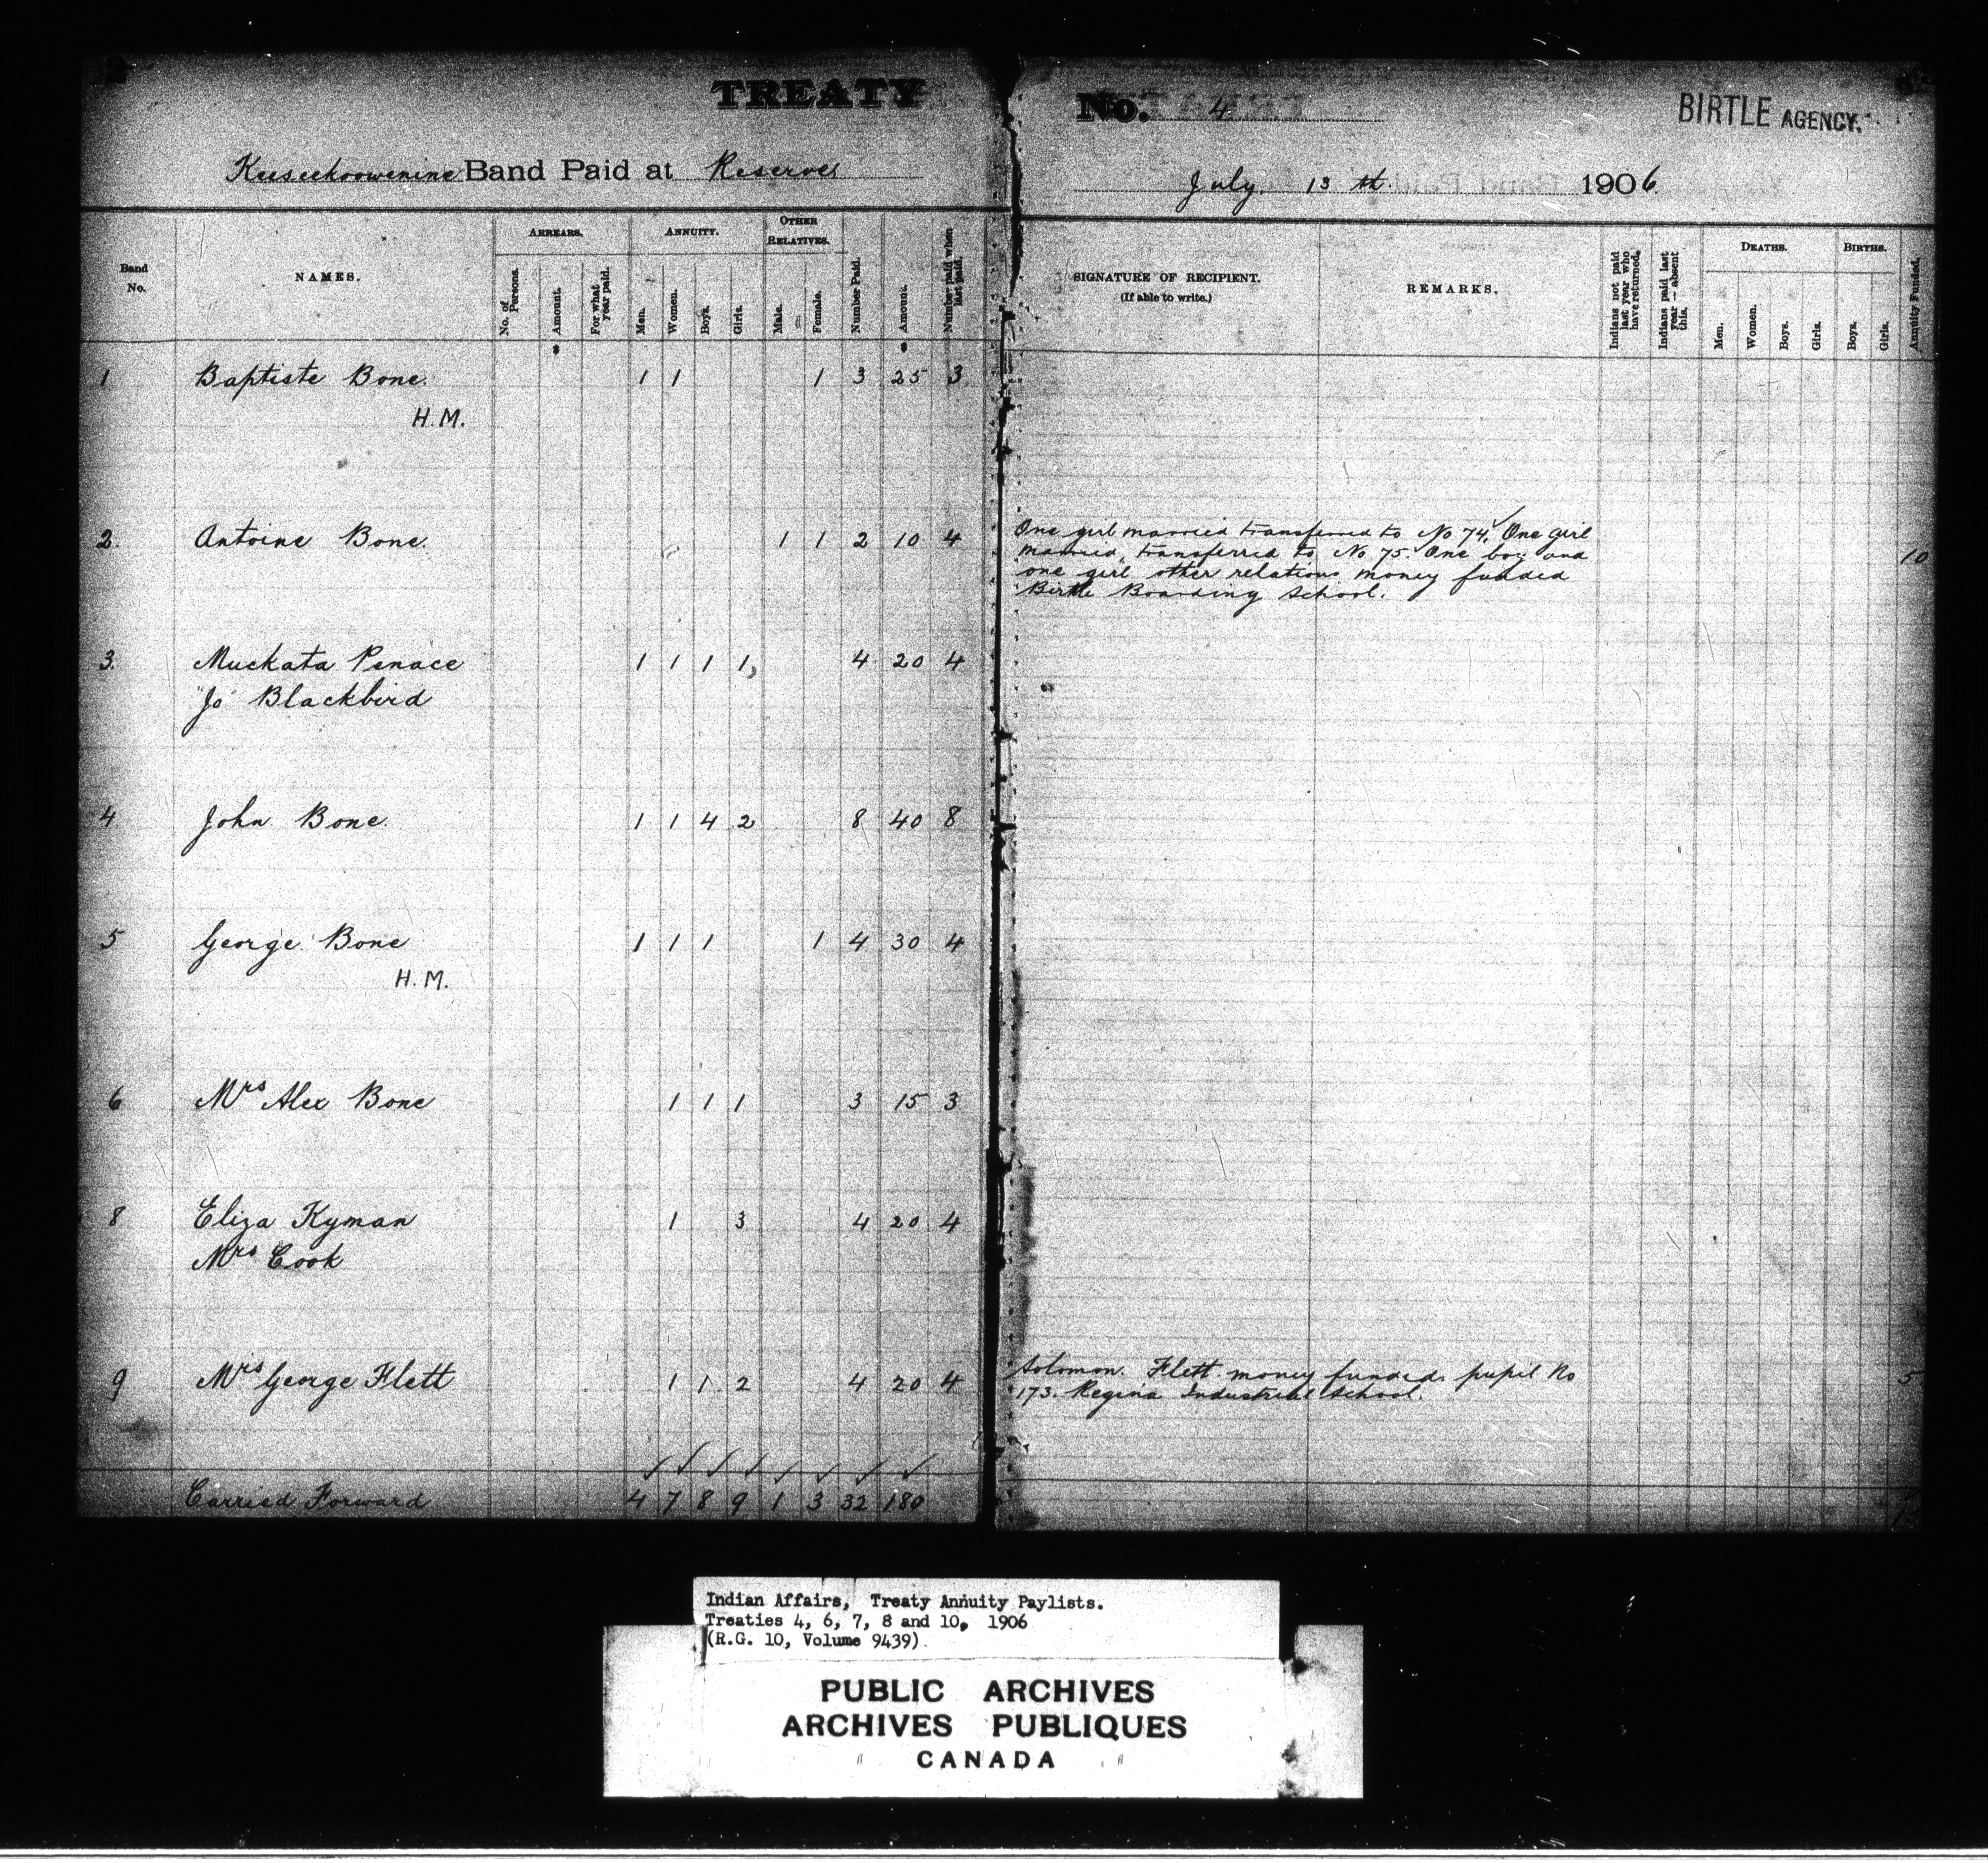 TREATY No. 4 BIRTLE AGENCY.
Keeseekoowenine Band Paid at Reserve July. 13th. 1906
Band No. NAMES. ARREARS. ANNUITY. OTHER RELATIVES. Number Paid. Amount. Number paid when last paid. SIGNATURE OF RECIPIENT. (If able to write.) REMARKS. Indians not paid last year who have returned. Indians paid last year — absent this. DEATHS. BIRTHS. Annuity Funded.
No. of Persons. Amount. For what year paid. Men. Women. Boys. Girls. Male. Female. Men. Women. Boys. Girls. Boys. Girls.
$ $
1 Baptiste Bone. 1 1 1 3 25 3
H.M.
2. Antoine Bone. 1 1 2 10 4 One girl married transferred to No 74. One girl
married, transferred to No 75. One boy and 10
one girl other relations money funded
Birtle Boarding School.
3. Muckata Penace 1 1 1 1 4 20 4
"Jo" Blackbird
4 John Bone. 1 1 4 2 8 40 8
5 George Bone 1 1 1 1 4 30 4
H.M.
6 Mrs Alex Bone 1 1 1 3 15 3
8 Eliza Kyman 1 3 4 20 4
Mrs Cook
9 Mrs George Flett 1 1 2 4 20 4 Solomon Flett money funded. pupil No 5
173. Regina Industrial School.
Carried Forward 4 7 8 9 1 3 32 180
Indian Affairs, Treaty Annuity Paylists.
Treaties 4, 6, 7, 8 and 10, 1906
(R.G. 10, Volume 9439)
PUBLIC ARCHIVES
ARCHIVES PUBLIQUES
" CANADA "